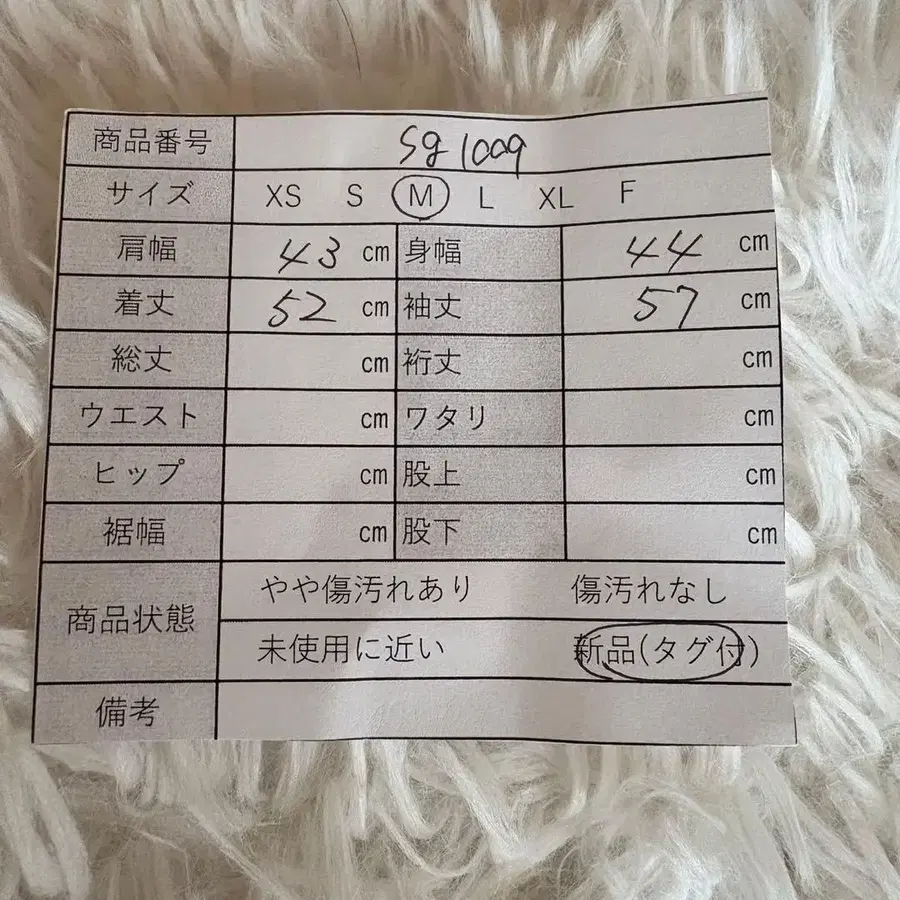 商品番号 sg1009
サイズ XS S M L XL F
肩幅 43 cm 身幅 44 cm
着丈 52 cm 袖丈 57 cm
総丈 cm 裄丈 cm
ウエスト cm ワタリ cm
ヒップ cm 股上 cm
裾幅 cm 股下 cm
商品状態 やや傷汚れあり 傷汚れなし
未使用に近い 新品(タグ付)
備考